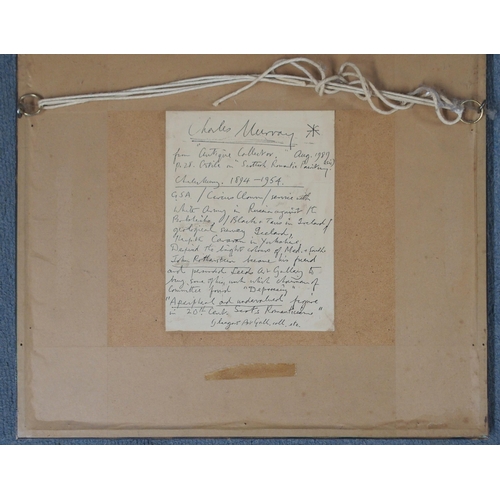 Charles Murray
from "Antique Collector" Aug. 1989
p. 28. Article on Scottish Romantic Painting
Charles Murray. 1894-1954.
GSA / Circus Clown / service with
White Army in Russia against the
Bolsheviks / Black + Tans in Ireland /
geological survey Iceland,
Caravan in Yorkshire,
the bright colours of
John Rothenstein became his friend
and persuaded Leeds Art Gallery to
buy some of his work which chairman of
Committee found "Depressing"
"A peripheral and undervalued figure
in 20th Cent. Scots Romanticism"
Glasgow Art Gall. coll. etc